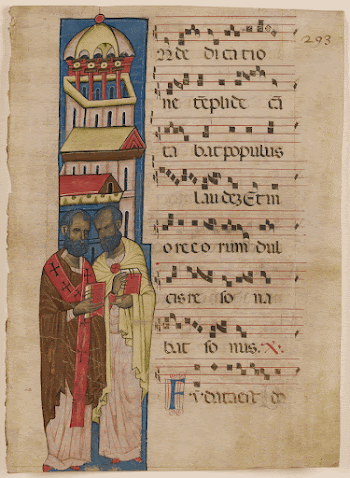 293
N de dicatio
ne tēpli de cā
ta bat populus
laudez Et in
o re e o rum dul
cis re so na
bat so nus. ℣.
Fūdata est do